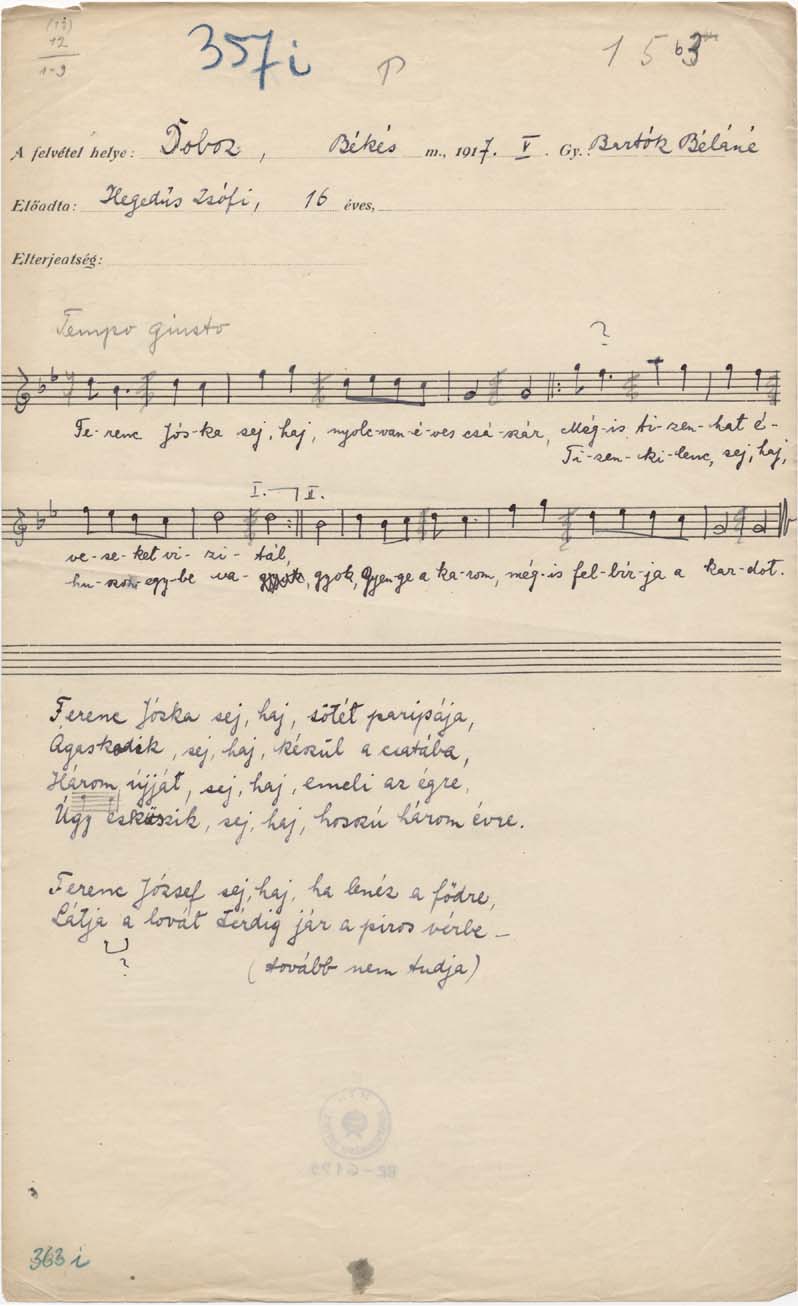 (13)
12
1-9
357i
1563
A felvétel helye: Doboz, Békés m., 1917. V. Gy.: Bartók Béláné
Előadta: Hegedűs Zsófi, 16 éves,
Elterjedtség:
Tempo giusto
?
Fe-renc Jós-ka sej, haj, nyolc-van-é-ves csá-szár, Még-is ti-zen-hat é-
Ti-zen-ki-lenc, sej, haj,
I. II.
ve-se-ket vi-zi-tál,
hu-szon-egy-be va- gyok, Gyen-ge a ka-rom, még-is fel-bír-ja a kar-dot.
Ferenc Jóska sej, haj, sötét paripája,
Ágaskodik, sej, haj, készül a csatába,
Három újját, sej, haj, emeli az égre,
Úgy esküszik, sej, haj, hosszú három évre.
Ferenc József sej, haj, ha lenéz a födre,
Látja a lovát térdig jár a piros vérbe –
?
(tovább nem tudja)
363 i